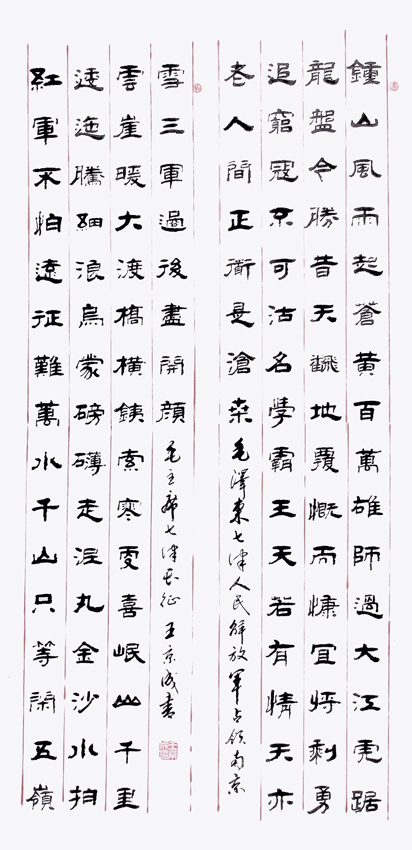 鍾山風雨起蒼黄百萬雄師過大江虎踞
龍盤今勝昔天翻地覆慨而慷宜将剩勇
追窮寇不可沽名學霸王天若有情天亦
老人間正道是滄桑 毛澤東七律人民解放軍占領南京
紅軍不怕遠征難萬水千山只等閑五嶺
逶迤騰細浪烏蒙磅礴走泥丸金沙水拍
雲崖暖大渡橋横鐵索寒更喜岷山千里
雪三軍過後盡開顔 毛主席七律長征 王京 書